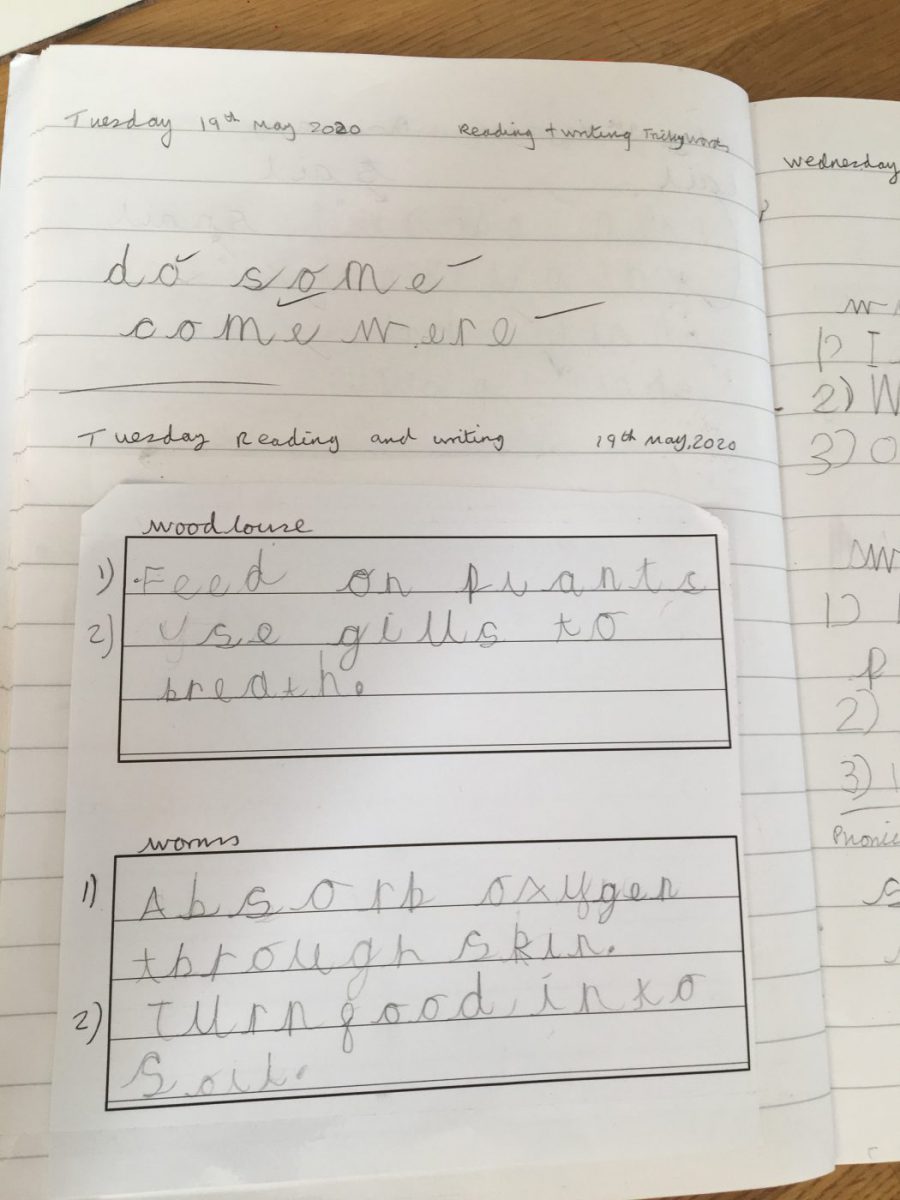 Tuesday 19th May 2020 Reading + writing Tricky words
do some
come were
Tuesday Reading and writing 19th May, 2020
woodlouse
1) Feed on plants
2) Use gills to
breath.
worms
1) Absorb oxygen
through skin.
2) Turn food into
Soil.
Wednesday
1) I
2) W
3) O
sw
1)
p
2)
3)
Phonic
s